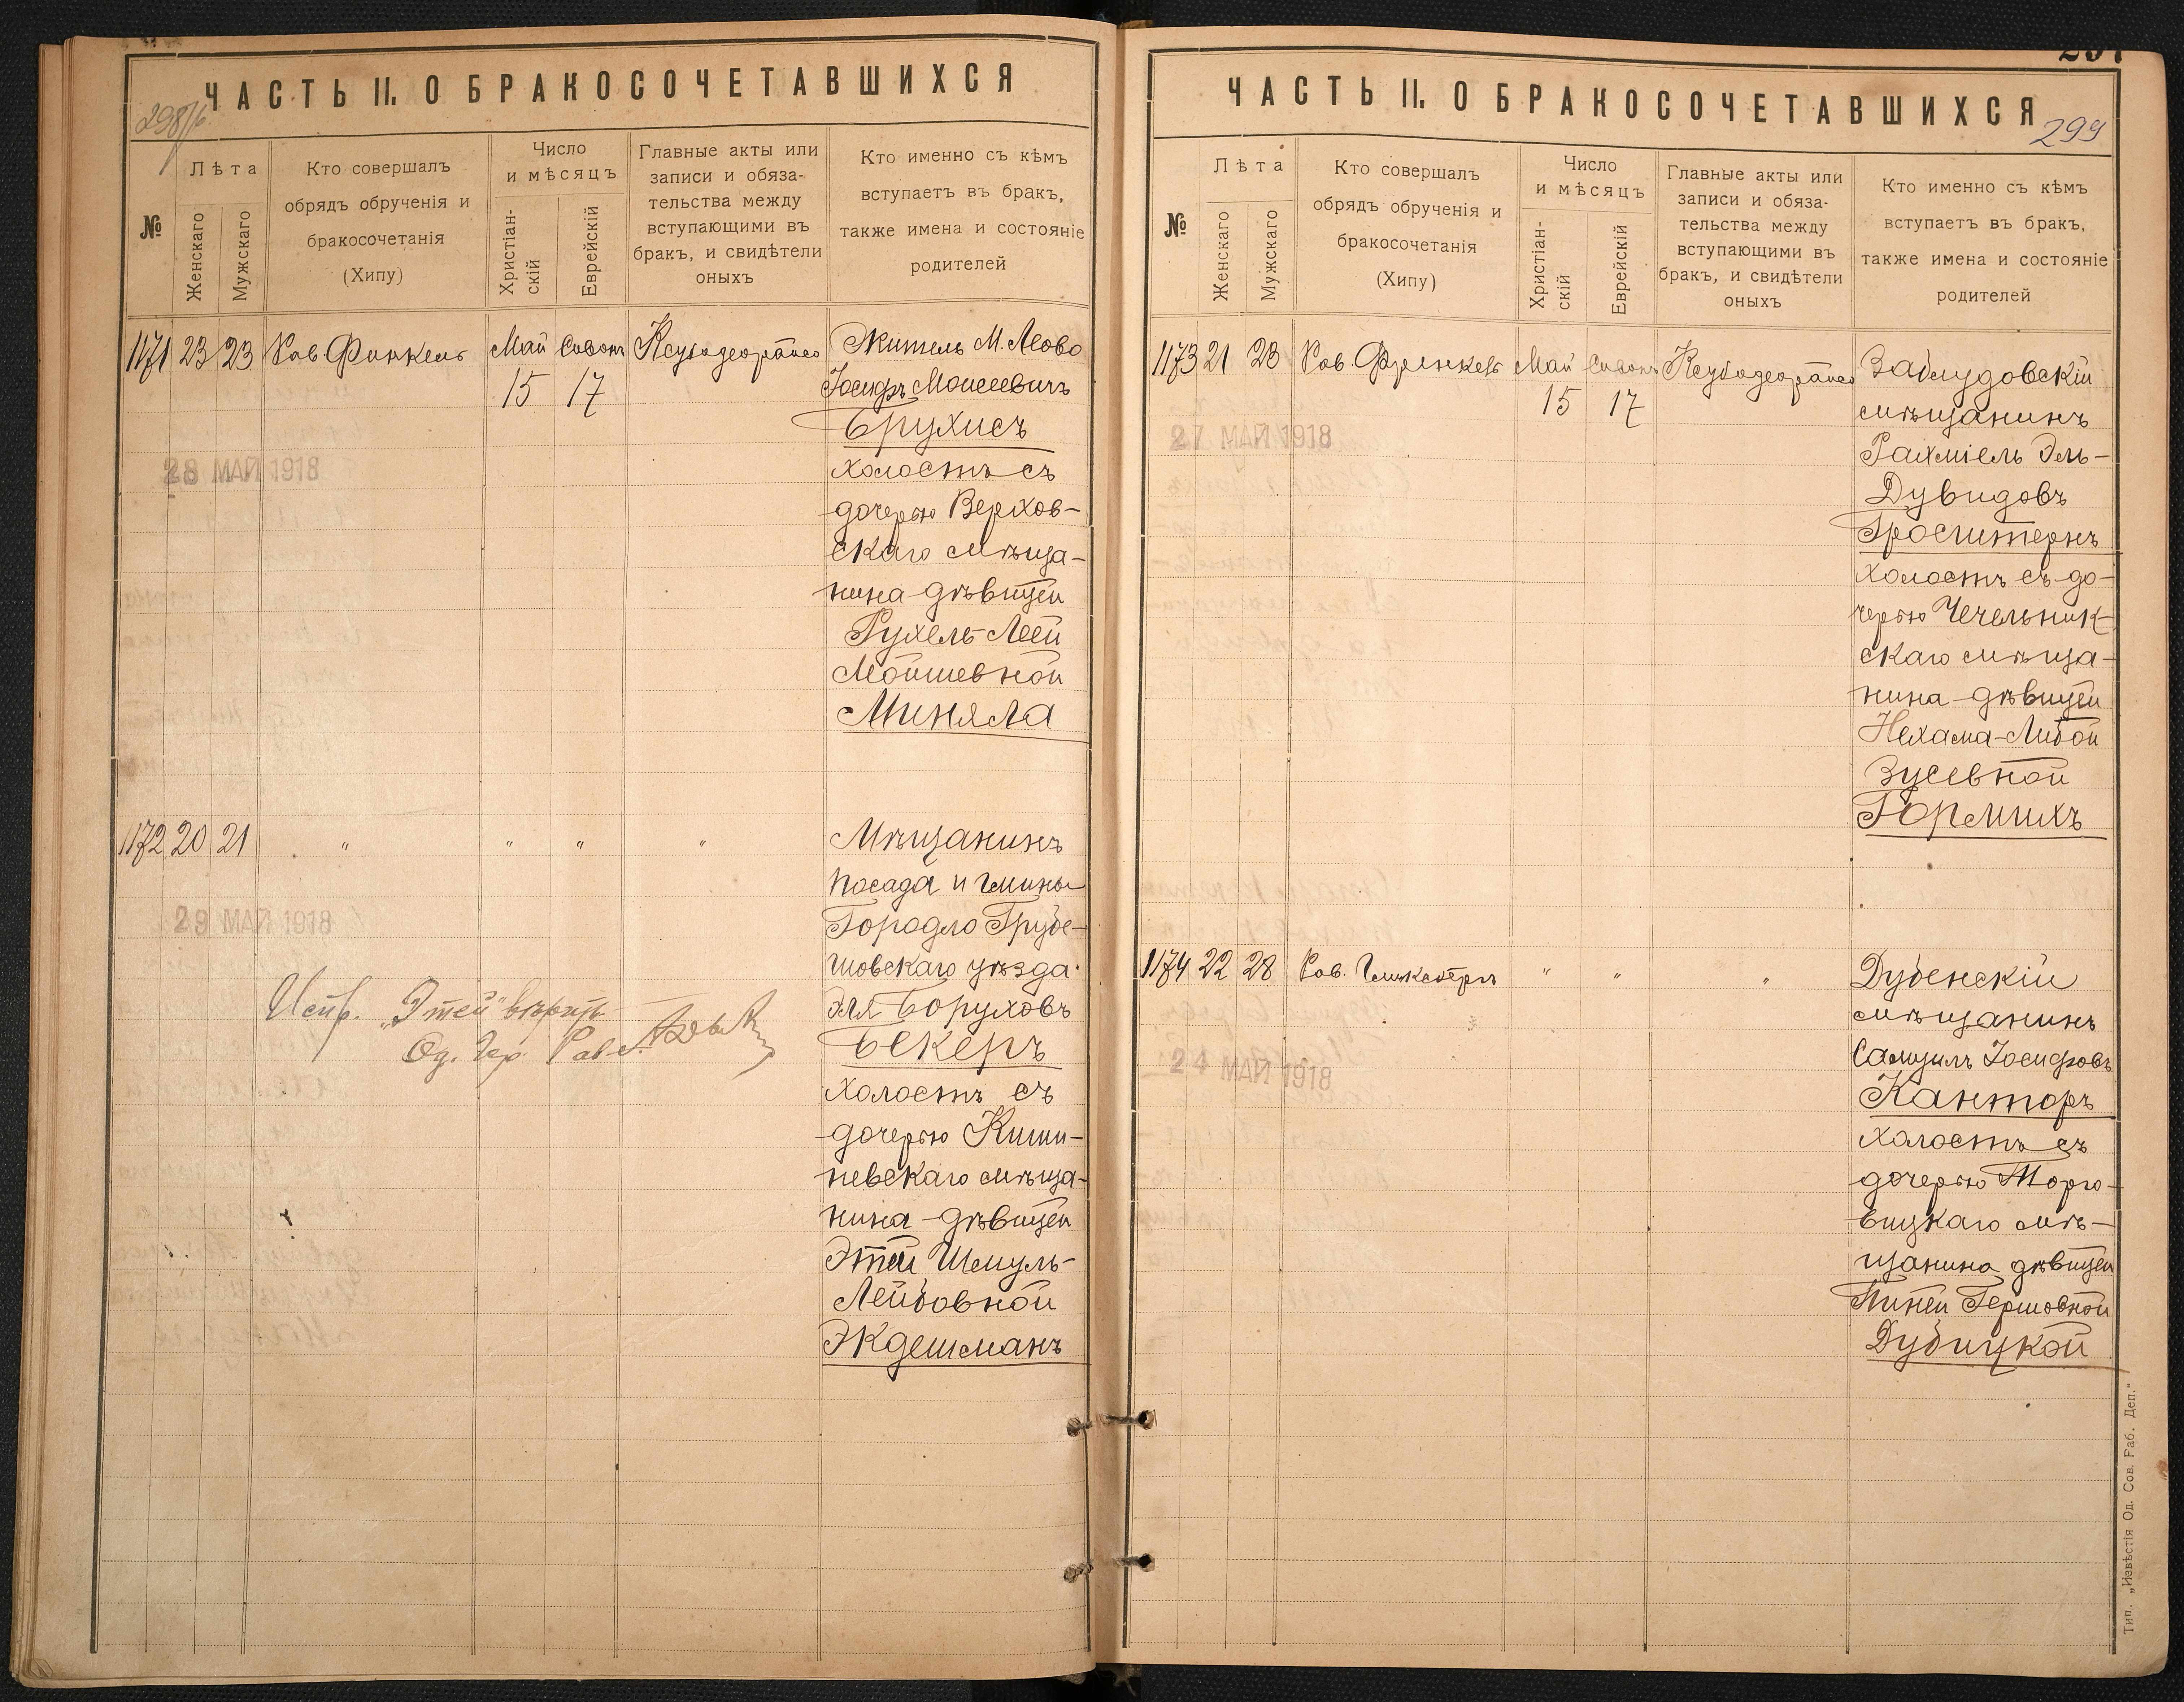 ЧАСТЬ II. О БРАКОСОЧЕТАВШИХСЯ
№
Лѣта
Женскаго
Мужскаго
Кто совершалъ
обрядъ обрученія и
бракосочетанія
(Хипу)
Число
и мѣсяцъ
Христіан-
скій
Еврейскій
Главные акты или
записи и обяза-
тельства между
вступающими въ
бракъ, и свидѣтели
оныхъ
Кто именно съ кѣмъ
вступаетъ въ бракъ,
также имена и состояніе
родителей
1171 23 23 Рав. Финкель Май Сивонъ
15 17
28 МАЙ 1918
Житель М. Леово
Іосифъ Моисеевичъ
Брухисъ
холостъ съ
дочерью Верхов-
скаго мѣща-
нина-дѣвицей
Рухель-Леей
Мойшевной
Миняла
1172 20 21 " " " "
29 МАЙ 1918
Мѣщанинъ
посада и гмины
Городло Грубе-
шовскаго уѣзда
Эля Боруховъ
Бекеръ
холостъ съ
дочерью Киши-
невскаго мѣща-
нина-дѣвицей
Этей Шмуль-
Лейбовной
Экдешманъ
Испр. „Этей" вѣрить
Од. Гор. Рав.
ЧАСТЬ II. О БРАКОСОЧЕТАВШИХСЯ
299
№
Лѣта
Женскаго
Мужскаго
Кто совершалъ
обрядъ обрученія и
бракосочетанія
(Хипу)
Число
и мѣсяцъ
Христіан-
скій
Еврейскій
Главные акты или
записи и обяза-
тельства между
вступающими въ
бракъ, и свидѣтели
оныхъ
Кто именно съ кѣмъ
вступаетъ въ бракъ,
также имена и состояніе
родителей
1173 21 23 Рав. Френкель Май Сивонъ
15 17
27 МАЙ 1918
Заблудовскій
мѣщанинъ
Рахміель Эль-
Дувидовъ
Гросштернъ
холостъ съ до-
черью Чечельник-
скаго мѣща-
нина-дѣвицей
Нехама-Либой
Зусевной
Гормихъ
1174 22 28 Рав. " " "
24 МАЙ 1918
Дубенскій
мѣщанинъ
Самуилъ Іосифовъ
Канторъ
холостъ съ
дочерью Торго-
вицкаго мѣ-
щанина дѣвицей
Пиней Гершовной
Дубицкой
Тип. „Извѣстія Од. Сов. Раб. Деп."